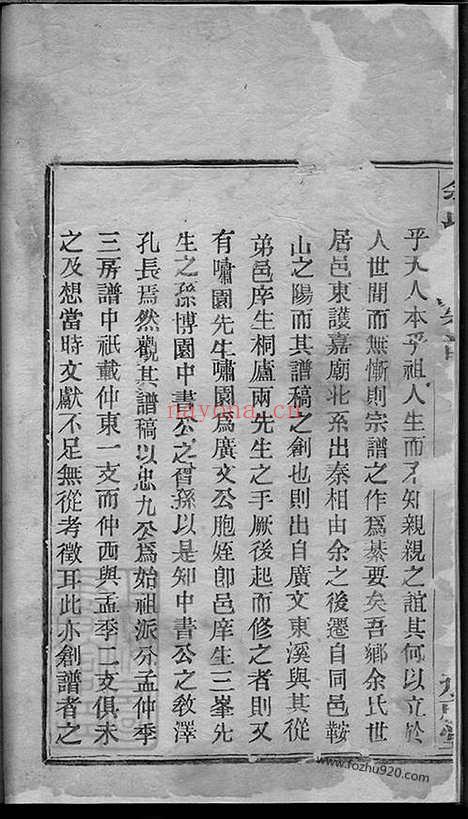 乎天人本乎祖人生而不知親親之誼其何以立於
人世間而無慚則宗譜之作爲綦要矣吾鄉余氏世
居邑東護嘉廟北系出秦相由余之後遷自同邑鞍
山之陽而其譜稿之創也則出自廣文東溪與其從
弟邑庠生桐廬兩先生之手厥後起而修之者則又
有嘯園先生嘯園爲廣文公胞姪卽邑庠生三峯先
生之孫博園中書公之胥孫以是知中書公之敎澤
孔長焉然觀其譜稿以忠九公爲始祖派分孟仲季
三房譜中祇載仲東一支而仲西與孟季二支俱未
之及想當時文獻不足無從考徵耳此亦創譜者之
nayona.cn
www.fozhu920.com